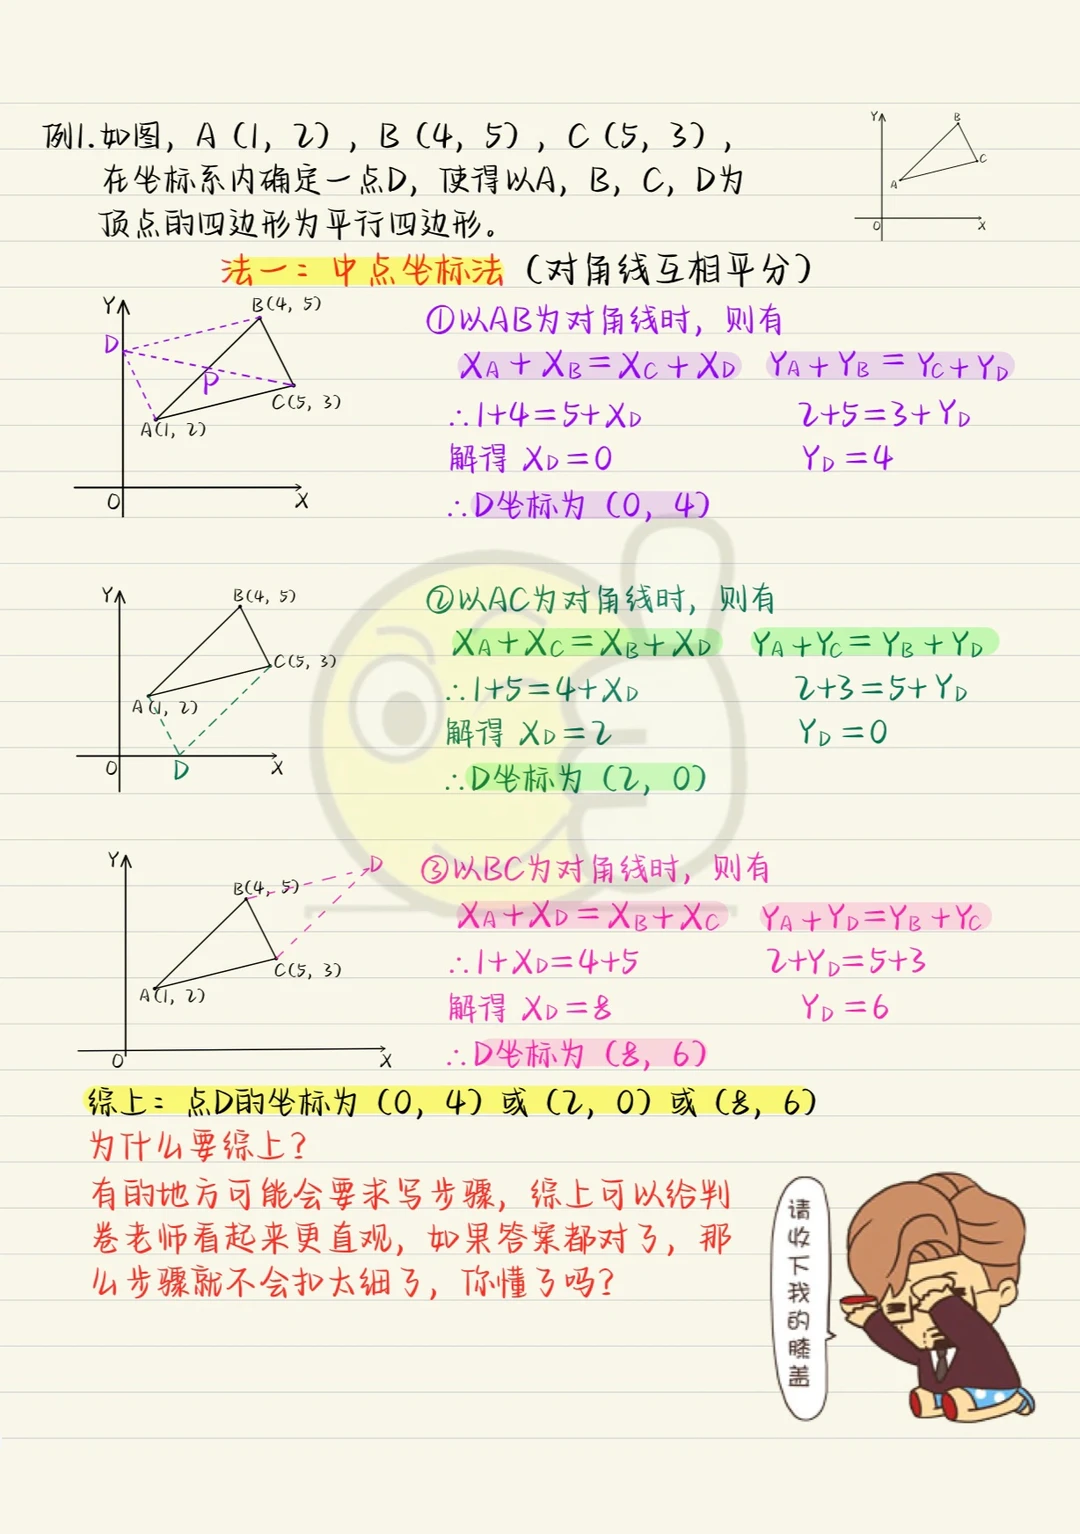 例1.如图，A（1，2），B（4，5），C（5，3），
在坐标系内确定一点D，使得以A，B，C，D为
顶点的四边形为平行四边形。
Y
B
C
A
O
X
法一：中点坐标法（对角线互相平分）
Y
B(4, 5)
D
P
C(5, 3)
A(1, 2)
O
X
①以AB为对角线时，则有
XA+XB=XC+XD YA+YB=YC+YD
∴1+4=5+XD 2+5=3+YD
解得 XD=0 YD=4
∴D坐标为（0，4）
Y
B(4, 5)
C(5, 3)
A(1, 2)
O
D
X
②以AC为对角线时，则有
XA+XC=XB+XD YA+YC=YB+YD
∴1+5=4+XD 2+3=5+YD
解得 XD=2 YD=0
∴D坐标为（2，0）
Y
D
B(4, 5)
C(5, 3)
A(1, 2)
O
X
③以BC为对角线时，则有
XA+XD=XB+XC YA+YD=YB+YC
∴1+XD=4+5 2+YD=5+3
解得 XD=8 YD=6
∴D坐标为（8，6）
综上：点D的坐标为（0，4）或（2，0）或（8，6）
为什么要综上？
有的地方可能会要求写步骤，综上可以给判
卷老师看起来更直观，如果答案都对了，那
么步骤就不会扣太细了，你懂了吗？
请收下我的膝盖